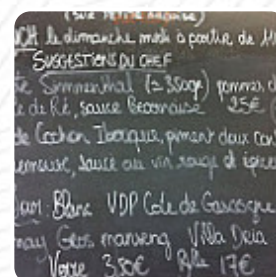 (SUR PETITE ARDOISE)
le dimanche midi à partir de
SUGGESTIONS DU CHEF
Simmenthal (± 350gr) pommes
de Ré, sauce Béarnaise 25€
de Cochon Iberique, piment doux
sauce au vin rouge et épices
Blanc VDP Cote de Gascogne
Gros manseng Villa Dria
Verre 3,50€ Blle 17€